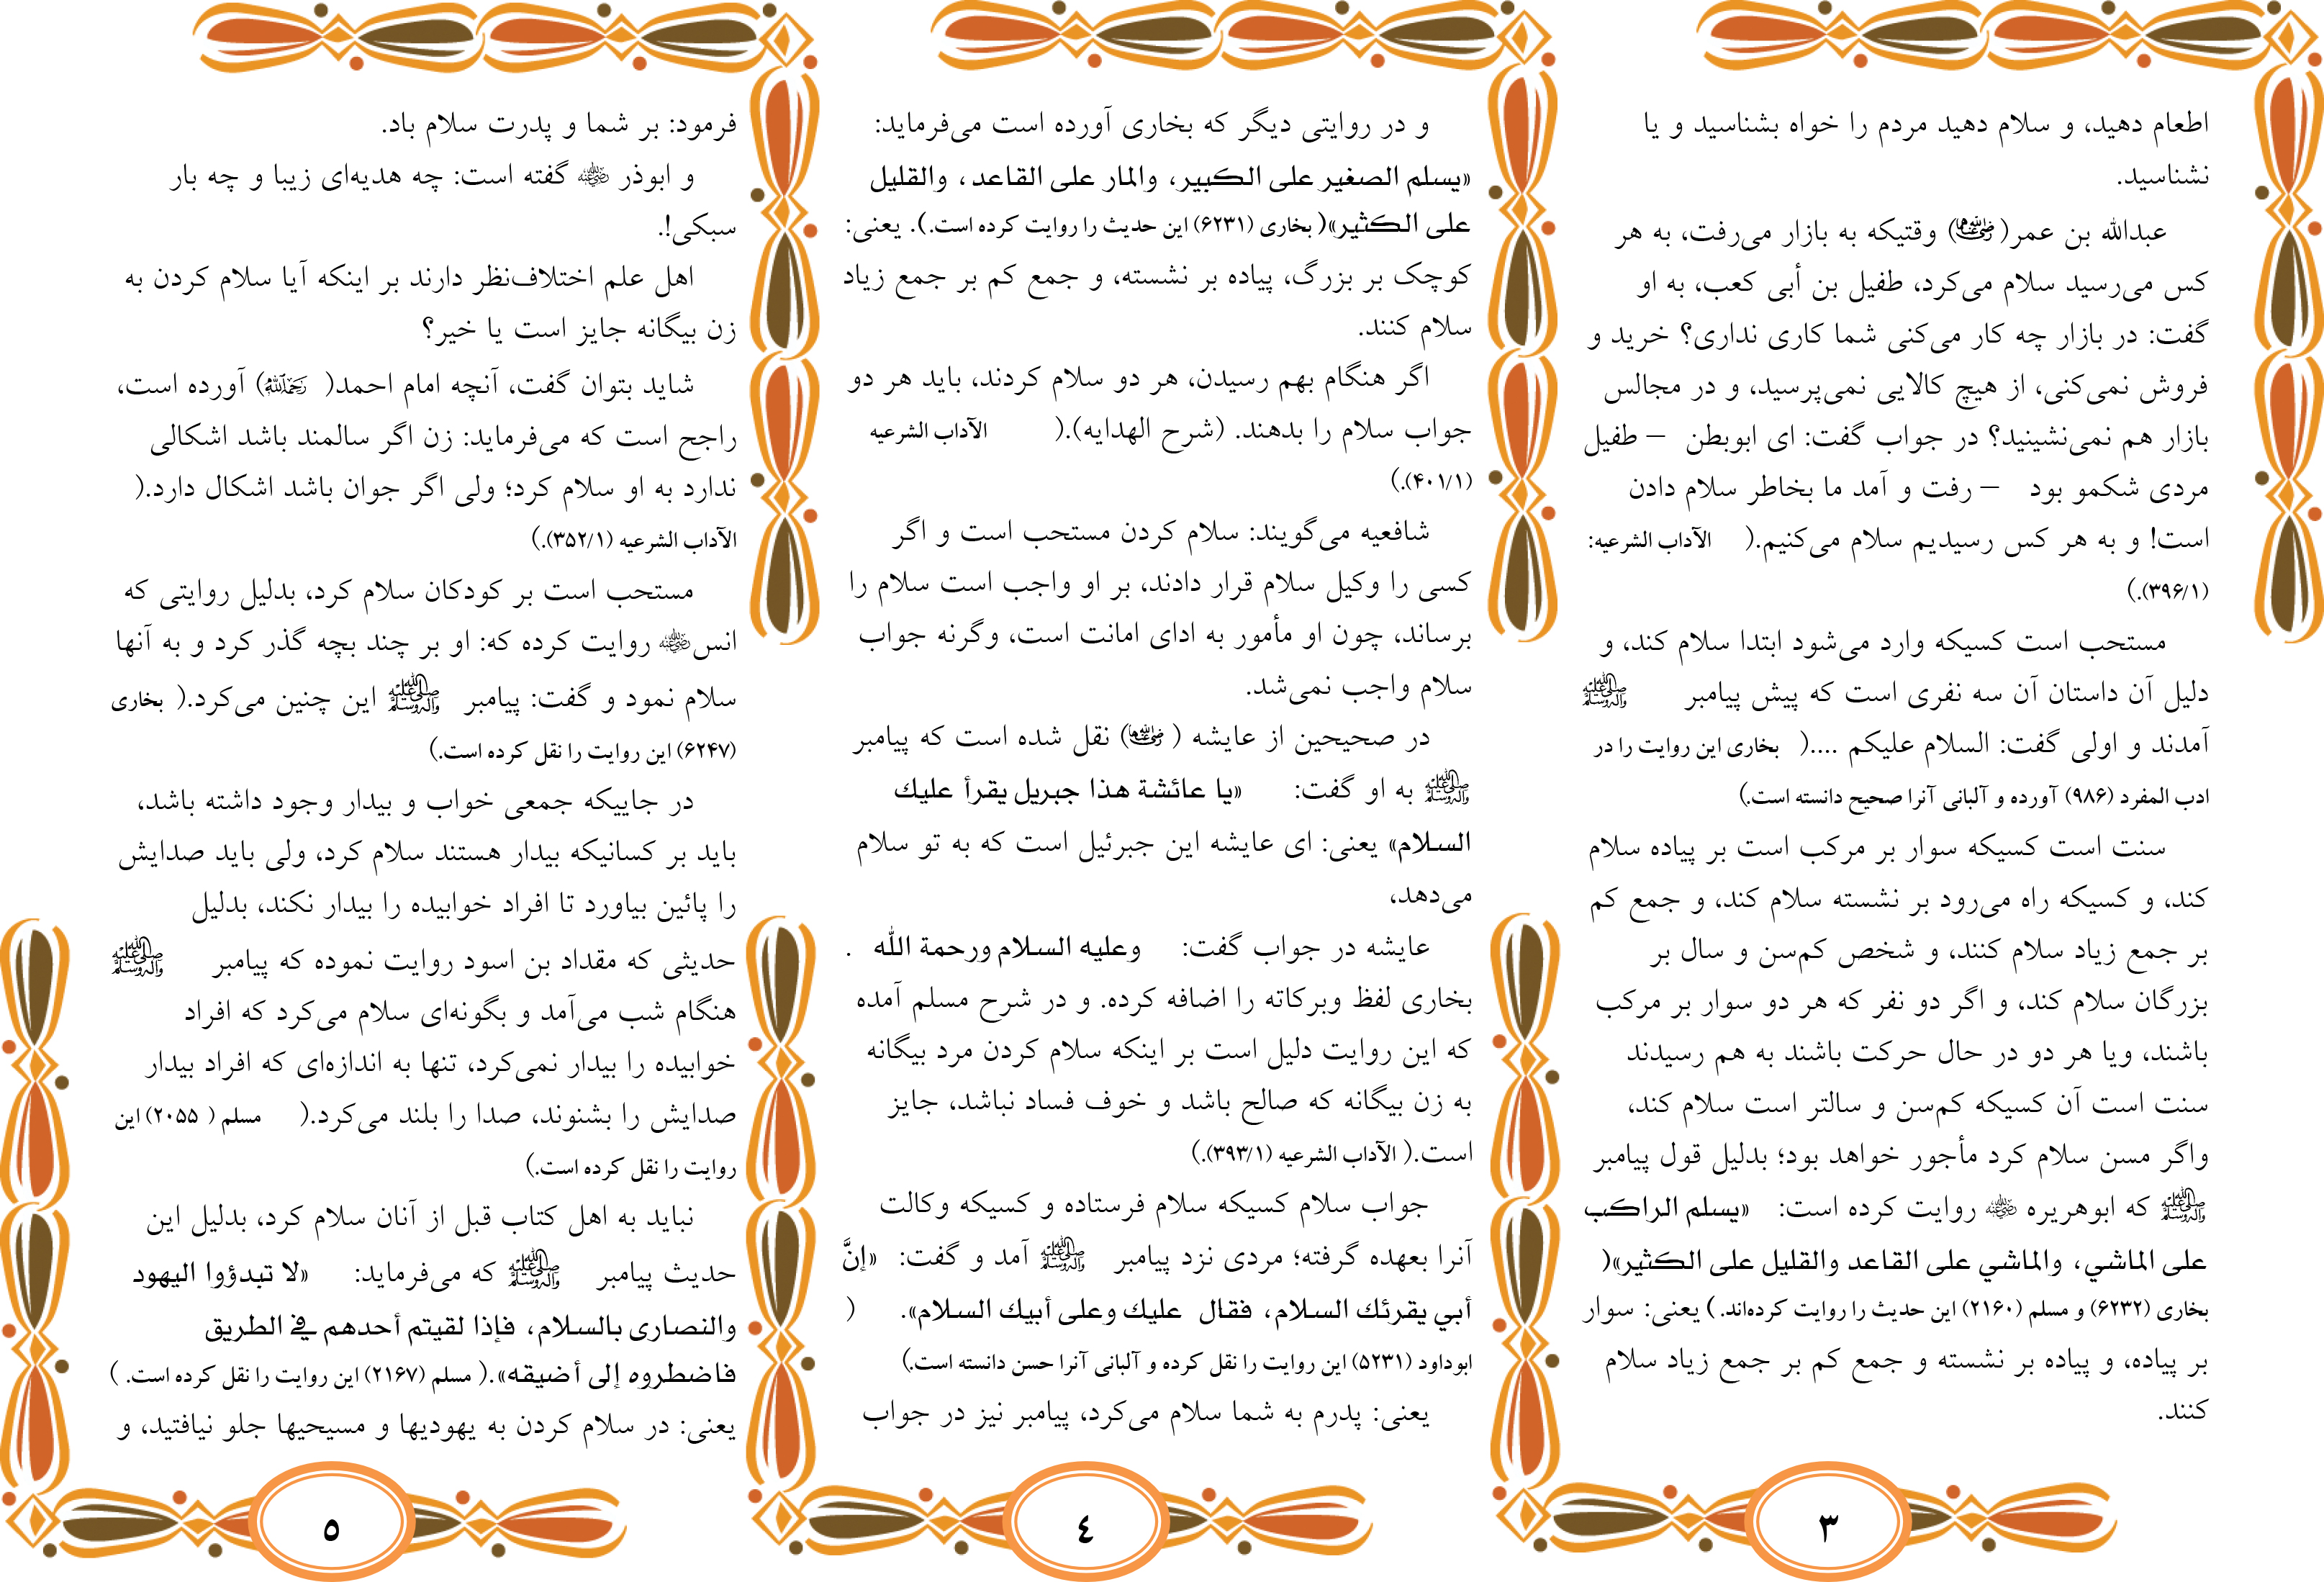 اطعام دهید، و سلام دهید مردم را خواه بشناسید و یا
نشناسید.
عبدالله بن عمر(رضی الله عنهما) وقتیکه به بازار می‌رفت، به هر
کس می‌رسید سلام می‌کرد، طفیل بن أبی کعب، به او
گفت: در بازار چه کار می‌کنی شما کاری نداری؟ خرید و
فروش نمی‌کنی، از هیچ کالایی نمی‌پرسید، و در مجالس
بازار هم نمی‌نشینید؟ در جواب گفت: ای ابوبطن – طفیل
مردی شکمو بود – رفت و آمد ما بخاطر سلام دادن
است! و به هر کس رسیدیم سلام می‌کنیم.( الآداب الشرعیه:
(۳۹۶/۱).)
مستحب است کسیکه وارد می‌شود ابتدا سلام کند، و
دلیل آن داستان آن سه نفری است که پیش پیامبر ﷺ
آمدند و اولی گفت: السلام علیکم ....( بخاری این روایت را در
ادب المفرد (۹۸۶) آورده و آلبانی آنرا صحیح دانسته است.)
سنت است کسیکه سوار بر مرکب است بر پیاده سلام
کند، و کسیکه راه می‌رود بر نشسته سلام کند، و جمع کم
بر جمع زیاد سلام کنند، و شخص کم‌سن و سال بر
بزرگان سلام کند، و اگر دو نفر که هر دو سوار بر مرکب
باشند، ویا هر دو در حال حرکت باشند به هم رسیدند
سنت است آن کسیکه کم‌سن و سالتر است سلام کند،
واگر مسن سلام کرد مأجور خواهد بود؛ بدلیل قول پیامبر
ﷺ که ابوهریره رضی الله عنه روایت کرده است: «يسلم الراكب
على الماشي، والماشي على القاعد والقليل على الكثير»(
بخاری (۶۲۳۲) و مسلم (۲۱۶۰) این حدیث را روایت کرده‌اند.) یعنی: سوار
بر پیاده، و پیاده بر نشسته و جمع کم بر جمع زیاد سلام
کنند.
٣
و در روایتی دیگر که بخاری آورده است می‌فرماید:
«يسلم الصغير على الكبير، والمار على القاعد، والقليل
على الكثير»( بخاری (۶۲۳۱) این حدیث را روایت کرده است.). یعنی:
کوچک بر بزرگ، پیاده بر نشسته، و جمع کم بر جمع زیاد
سلام کنند.
اگر هنگام بهم رسیدن، هر دو سلام کردند، باید هر دو
جواب سلام را بدهند. (شرح الهدایه).( الآداب الشرعیه
(۴۰۱/۱).)
شافعیه می‌گویند: سلام کردن مستحب است و اگر
کسی را وکیل سلام قرار دادند، بر او واجب است سلام را
برساند، چون او مأمور به ادای امانت است، وگرنه جواب
سلام واجب نمی‌شد.
در صحیحین از عایشه (رضی الله عنها) نقل شده است که پیامبر
ﷺ به او گفت: «يا عائشة هذا جبريل يقرأ عليك
السلام» یعنی: ای عایشه این جبرئیل است که به تو سلام
می‌دهد،
عایشه در جواب گفت: وعليه السلام ورحمة الله .
بخاری لفظ وبرکاته را اضافه کرده. و در شرح مسلم آمده
که این روایت دلیل است بر اینکه سلام کردن مرد بیگانه
به زن بیگانه که صالح باشد و خوف فساد نباشد، جایز
است.( الآداب الشرعیه (۳۹۳/۱).)
جواب سلام کسیکه سلام فرستاده و کسیکه وکالت
آنرا بعهده گرفته؛ مردی نزد پیامبر ﷺ آمد و گفت: «إنَّ
أبي يقرئك السلام، فقال عليك وعلى أبيك السلام». (
ابوداود (۵۲۳۱) این روایت را نقل کرده و آلبانی آنرا حسن دانسته است.)
یعنی: پدرم به شما سلام می‌کرد، پیامبر نیز در جواب
٤
فرمود: بر شما و پدرت سلام باد.
و ابوذر رضی الله عنه گفته است: چه هدیه‌ای زیبا و چه بار
سبکی!.
اهل علم اختلاف‌نظر دارند بر اینکه آیا سلام کردن به
زن بیگانه جایز است یا خیر؟
شاید بتوان گفت، آنچه امام احمد(رحمه الله) آورده است،
راجح است که می‌فرماید: زن اگر سالمند باشد اشکالی
ندارد به او سلام کرد؛ ولی اگر جوان باشد اشکال دارد.(
الآداب الشرعیه (۳۵۲/۱).)
مستحب است بر کودکان سلام کرد، بدلیل روایتی که
انس رضی الله عنه روایت کرده که: او بر چند بچه گذر کرد و به آنها
سلام نمود و گفت: پیامبر ﷺ این چنین می‌کرد.( بخاری
(۶۲۴۷) این روایت را نقل کرده است.)
در جاییکه جمعی خواب و بیدار وجود داشته باشد،
باید بر کسانیکه بیدار هستند سلام کرد، ولی باید صدایش
را پائین بیاورد تا افراد خوابیده را بیدار نکند، بدلیل
حدیثی که مقداد بن اسود روایت نموده که پیامبر ﷺ
هنگام شب می‌آمد و بگونه‌ای سلام می‌کرد که افراد
خوابیده را بیدار نمی‌کرد، تنها به اندازه‌ای که افراد بیدار
صدایش را بشنوند، صدا را بلند می‌کرد.( مسلم ( ۲۰۵۵) این
روایت را نقل کرده است.)
نباید به اهل کتاب قبل از آنان سلام کرد، بدلیل این
حدیث پیامبر ﷺ که می‌فرماید: «لا تبدؤوا اليهود
والنصارى بالسلام، فإذا لقيتم أحدهم في الطريق
فاضطروه إلى أضيقه».( مسلم (۲۱۶۷) این روایت را نقل کرده است. )
یعنی: در سلام کردن به یهودیها و مسیحیها جلو نیافتید، و
٥